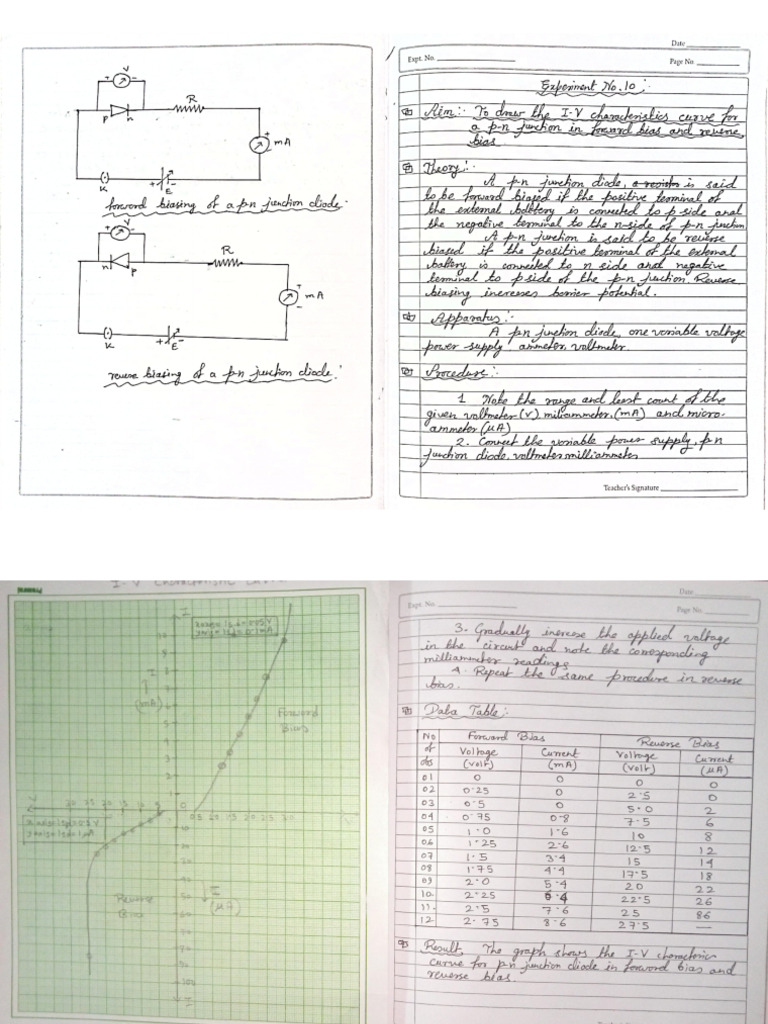 V
+ -
P n
R
+
mA
-
K
+ -
E
forward biasing of a p-n junction diode.
V
+ -
n P
R
+
mA
-
K
+ -
E
reverse biasing of a p-n junction diode.
Date
Expt. No.
Page No.
Experiment No. 10 :
Aim:- To draw the I-V characteristics curve for
a p-n junction in forward bias and reverse
bias.
Theory:-
A p-n junction diode, a resistor is said
to be forward biased if the positive terminal of
the external battery is connected to p side and
the negative terminal to the n-side of p-n junction
A p-n junction is said to be reverse
biased if the positive terminal of the external
battery is connected to n side and negative
terminal to p side of the p-n junction. Reverse
biasing increases barrier potential.
Apparatus:-
A p-n junction diode, one variable voltage
power supply, ammeter, voltmeter.
Procedure:-
1. Note the range and least count of the
given voltmeter (V) miliammeter, (mA) and micro-
ammeter (μA)
2. Connect the variable power supply, p-n
junction diode, voltmeter milliammeter
Teacher's Signature
I-V Characteristic
I
I
(mA)
Forward
Bias
Reverse
Bias
I
(μA)
I
Date
Expt. No.
Page No.
3. Gradually increase the applied voltage
in the circuit and note the corresponding
milliammeter readings
4. Repeat the same procedure in reverse
bias.
Data Table:-
No of obs Forward Bias Reverse Bias
Voltage (volt) Current (mA) Voltage (volt) Current (μA)
01 0 0 0 0
02 0.25 0 2.5 0
03 0.5 0 5.0 2
04 0.75 0.8 7.5 6
05 1.0 1.6 10 8
06 1.25 2.6 12.5 12
07 1.5 3.4 15 14
08 1.75 4.4 17.5 18
09 2.0 5.4 20 22
10. 2.25 6.4 22.5 26
11. 2.5 7.6 25 86
12. 2.75 8.6 27.5 —
Result, The graph shows the I-V characteristics
curve for p-n junction diode in forward bias and
reverse bias.